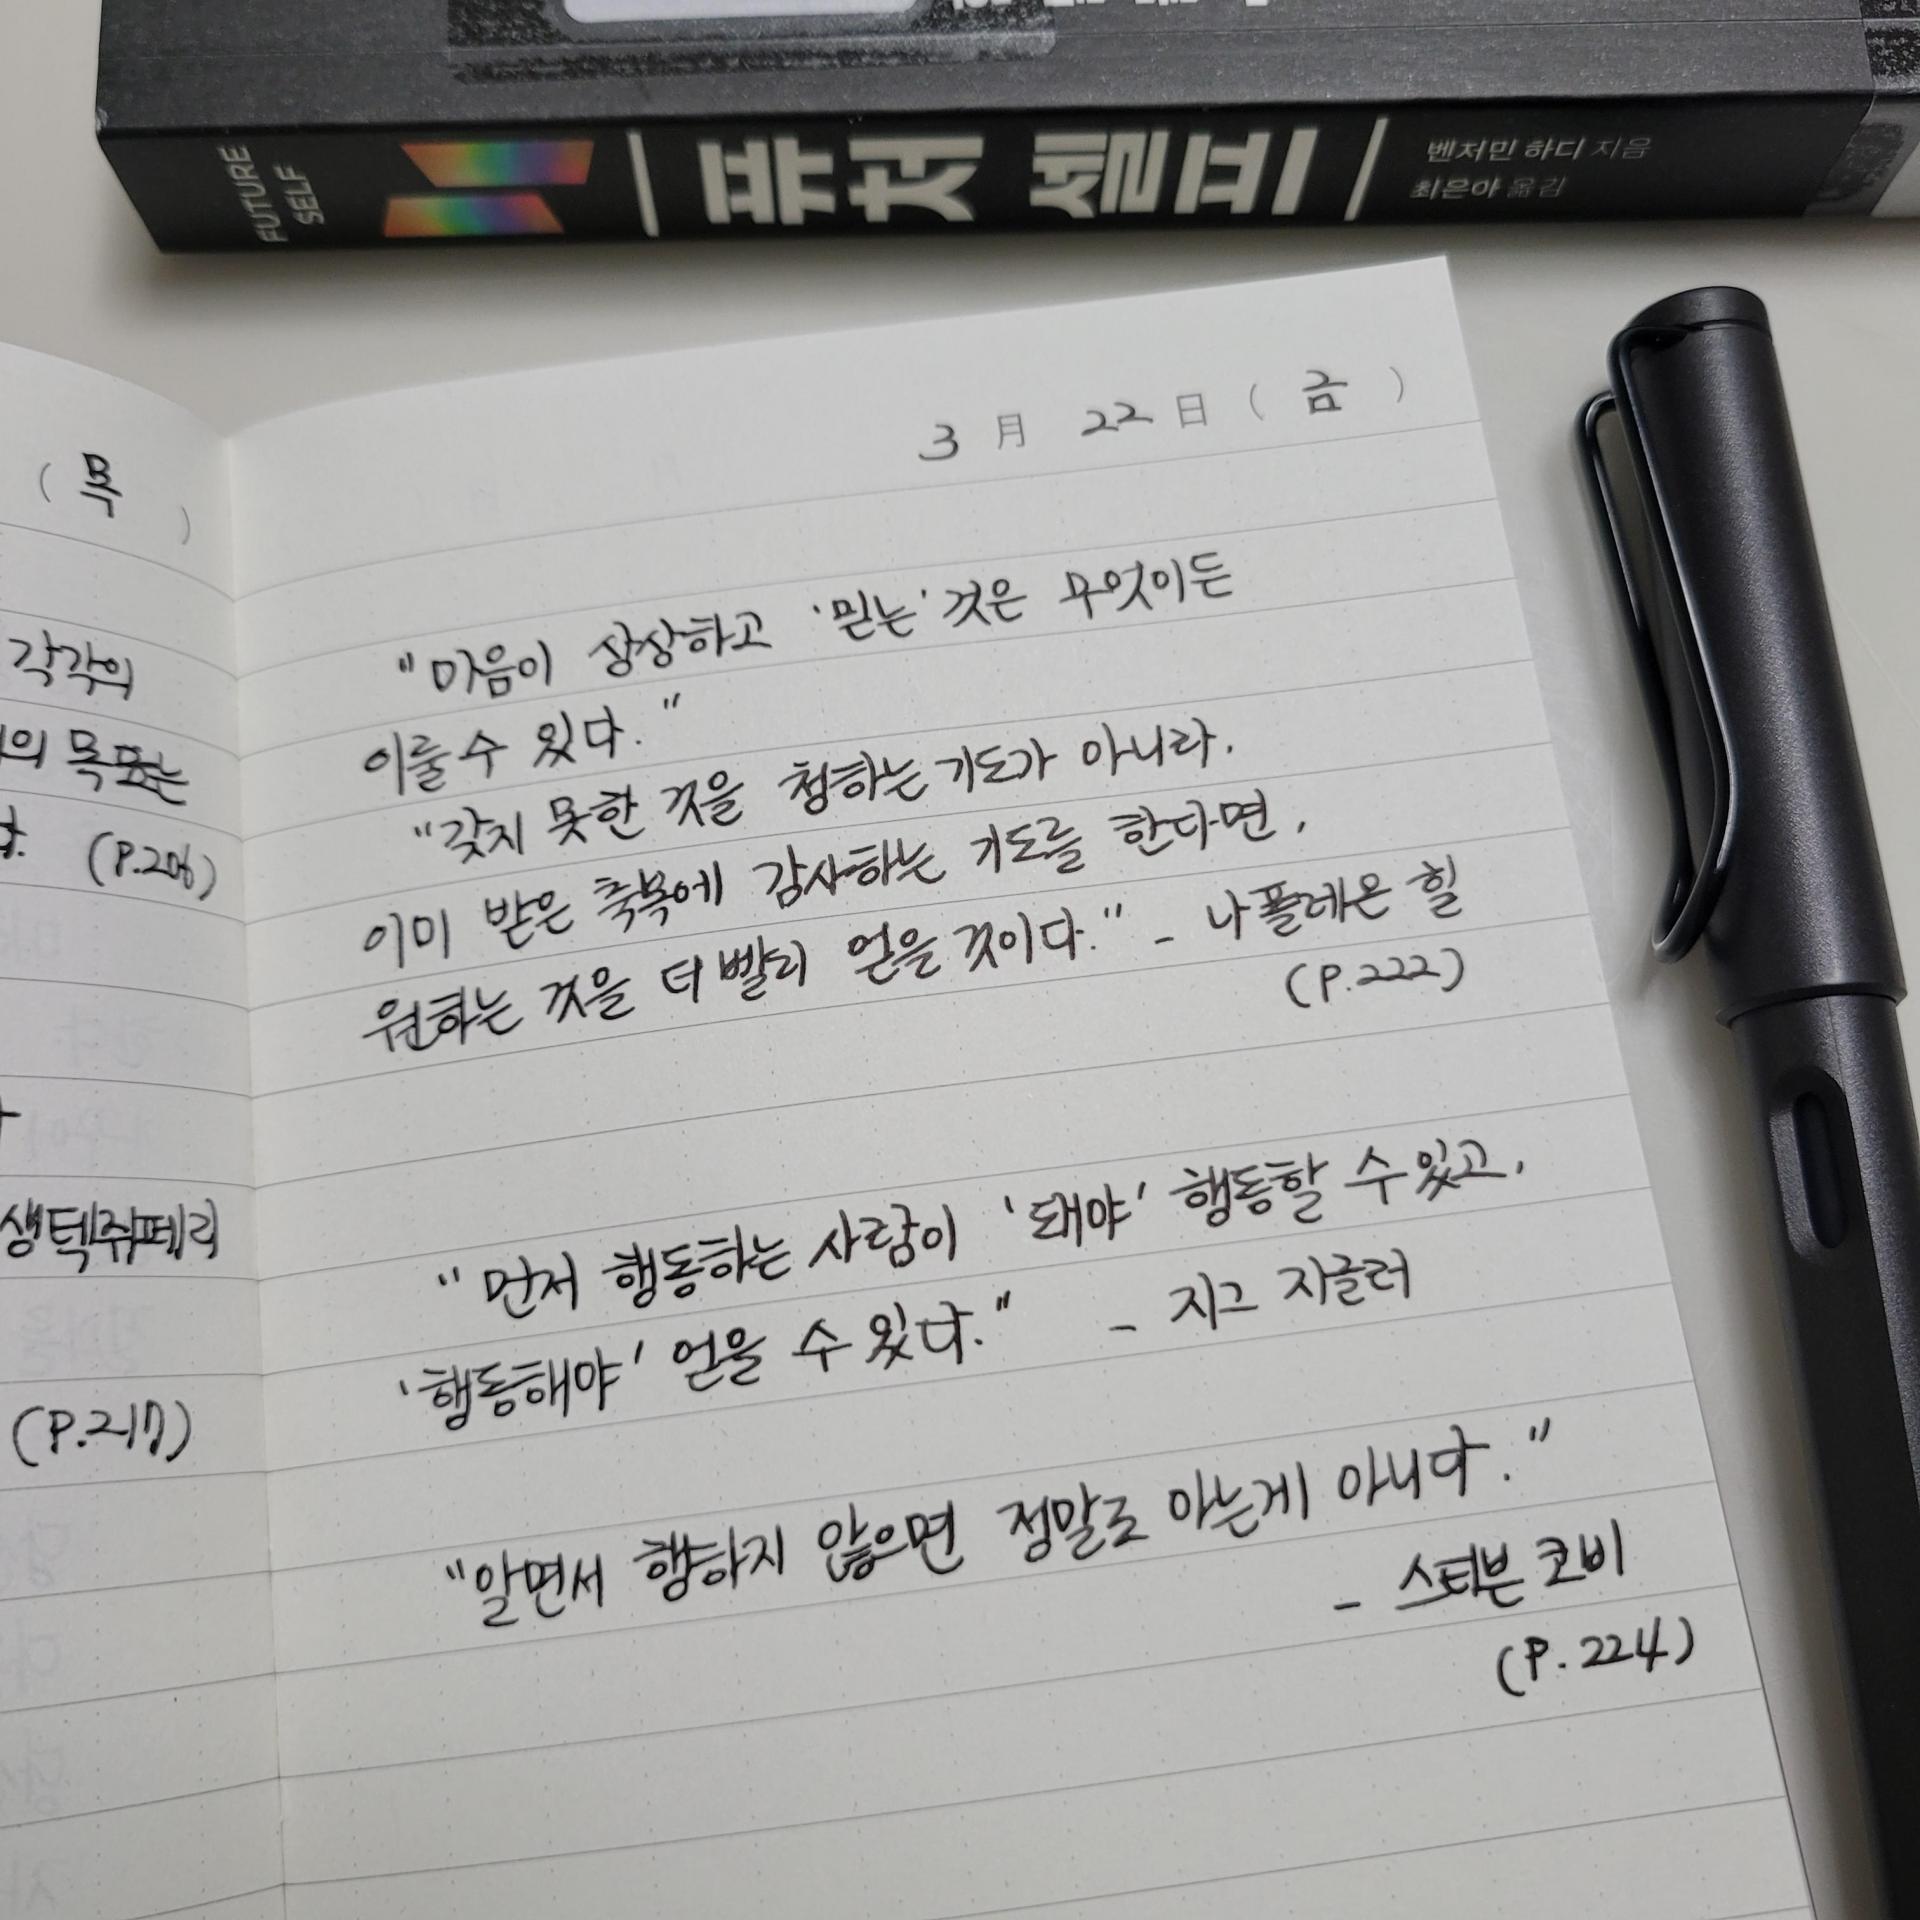 FUTURE
SELF
퓨처 셀프
벤저민 하디 지음
최은아 옮김
(목)
각각의
의 목표는
(P.206)
생텍쥐페리
(P.217)
3 月 22 日 ( 금 )
"마음이 상상하고 '믿는' 것은 무엇이든
이룰 수 있다."
"갖지 못한 것을 청하는 기도가 아니라,
이미 받은 축복에 감사하는 기도를 한다면,
원하는 것을 더 빨리 얻을 것이다." - 나폴레온 힐
(P.222)
"먼저 행동하는 사람이 '돼야' 행동할 수 있고,
'행동해야' 얻을 수 있다." - 지그 지글러
"알면서 행하지 않으면 정말로 아는게 아니다."
- 스티븐 코비
(P.224)